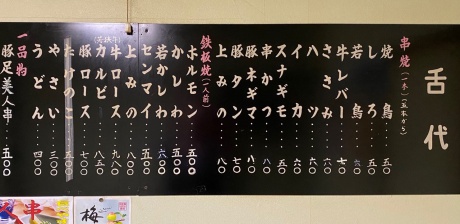 舌代
串焼(一本)(五本から)
焼鳥‥五〇
しろ‥五〇
若鳥‥六〇
牛レバー‥七〇
ささみ‥六〇
ハツ‥六〇
イカ‥六〇
スナギモ‥五〇
串かつ‥八〇
豚ネギマ‥八〇
豚タン‥七〇
上みの‥八〇
鉄板焼(一人前)
ホルモン‥五〇〇
かしわ‥五〇〇
若かしわ‥六〇〇
センマイ‥五〇〇
上みの‥八〇〇
牛ロース‥九八〇
カルビ‥八五〇
豚ロース‥七〇〇
たけのこ‥五〇〇
やさい‥三〇〇
うどん‥四〇〇
一品物
豚足美人串‥五〇〇
串
梅